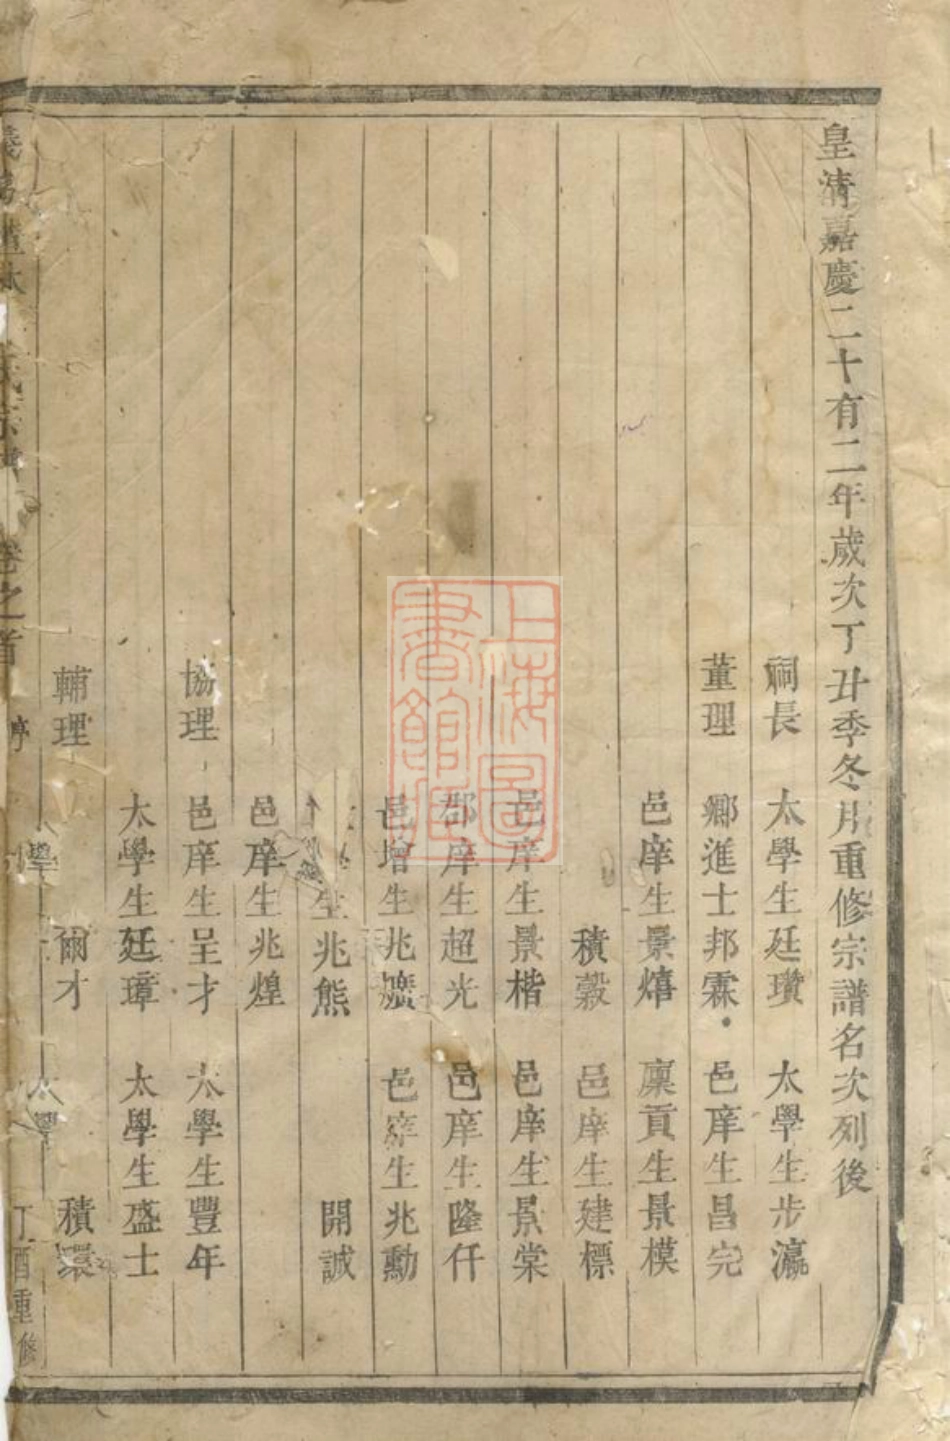 皇清嘉慶二十有二年歲次丁丑季冬月重修宗譜名次列後
祠長 太學生廷瓚 太學生步瀛
董理 鄉進士邦霖 邑庠生昌完
邑庠生景熺 廩貢生景模
積穀 邑庠生建標
邑庠生景楷 邑庠生景棠
郡庠生超光 邑庠生隆仟
邑增生兆爌 邑庠生兆勳
生兆熊 開誠
邑庠生兆煌
協理 邑庠生呈才 太學生豐年
太學生廷璋 太學生盛士
輔理 學 爾才 太學 積環
氏宗譜 卷之首 序 丁酉重修
上海圖書館藏